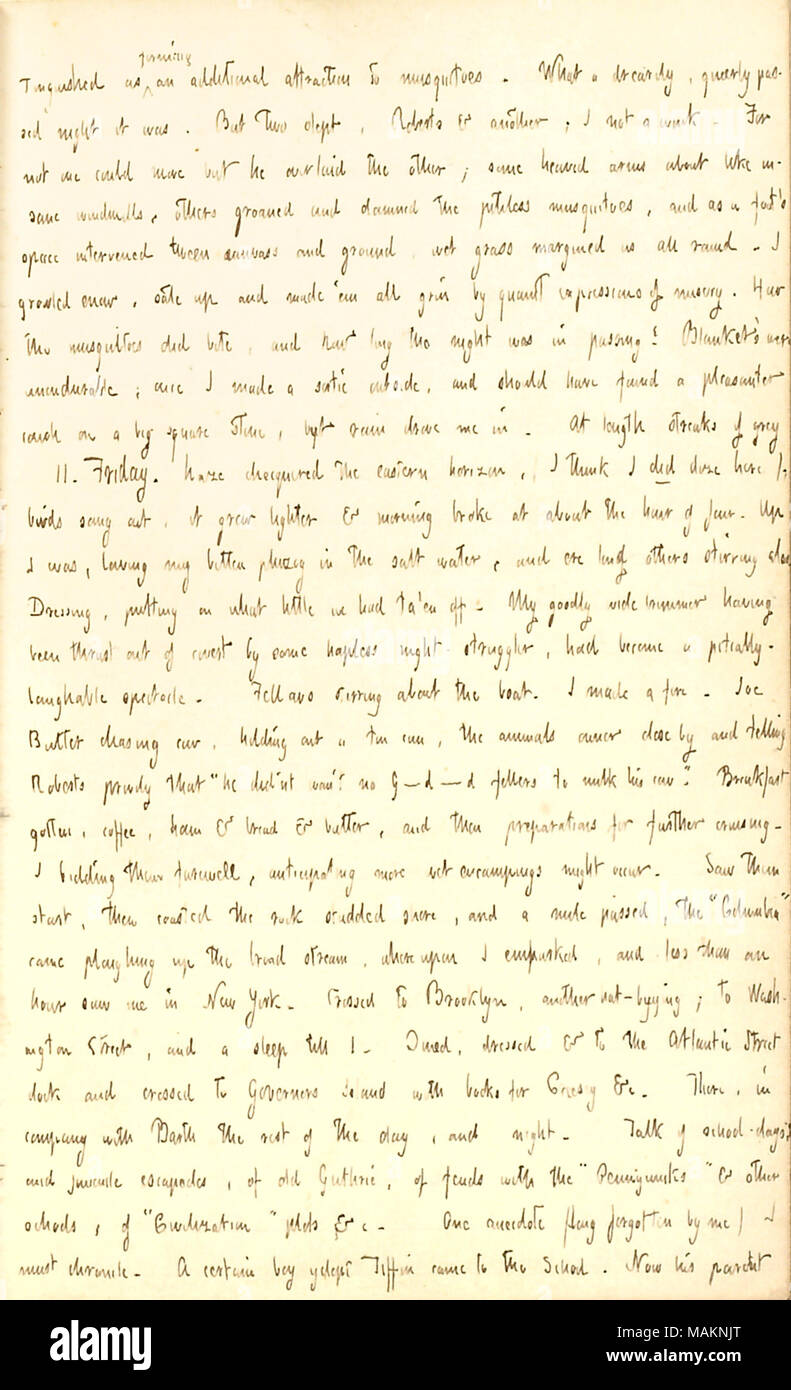 forming
tinguished as an additional attraction to musquitoes. What a drearily, queerly pas-
sed night it was. But two slept, Roberts & another; I not a wink. For
not one could move but he overlaid the other; some heaved arms about like in-
sane windmills, others groaned and damned the pitiless musquitoes, and as a foot's
space intervened tween canvass and ground, wet grass margined us all round. I
growled enow, sate up and made 'em all grin by quaint expressions of misery. How
the musquitoes did bite, and how long the night was in passing! Blanket's were
unendurable; once I made a sortie outside, and should have found a pleasanter
couch on a big square stone, but rain drove me in. At length streaks of grey
11. Friday. haze chequered the eastern horizon, I think I did doze here /,
birds sang out, it grew lighter & morning broke at about the hour of four. Up
I was, laving my bitten phizog in the salt water, and ere long others stirring also
Dressing, putting on what little we had ta'en off. My goodly wide brimmer having
been thrust out of covert by some hapless night struggler, had become a piteally-
laughable spectacle. Fellows stirring about the boat. I made a fire. Joe
Butler chasing cow, holding out a tin can, the animals owner close by and telling
Roberts prowdly that "he didn't won't no G—d—d fellers to milk his cow". Breakfast
gotten, coffee, ham & bread & butter, and then preparations for further cruising.
I bidding them farewell, anticipating more wet encampings might occur. Saw them
start, then coasted the rock studded shore, and a mile passed, the "Columbia"
came ploughing up the broad stream, whereupon I embarked, and less than an
hour saw me in New York. Crossed to Brooklyn, another hat-bying; to Wash-
ington Street, and a sleep till 1. Dined, dressed & to the Atlantic Street
dock and crossed to Governors Island with books for &c. There, in
company with Barth the rest of the day, and night. Talk of school-days,
and juvenile escapades, of old Guthrie, of feuds with the " " & other
schools, of "Civilization" plots &c. One anecdote (long forgotten by me) I
must chronicle. A certain boy yclept Tiffin came to the School. Now his parent
alamy
Image ID: MAKNJT
www.alamy.com